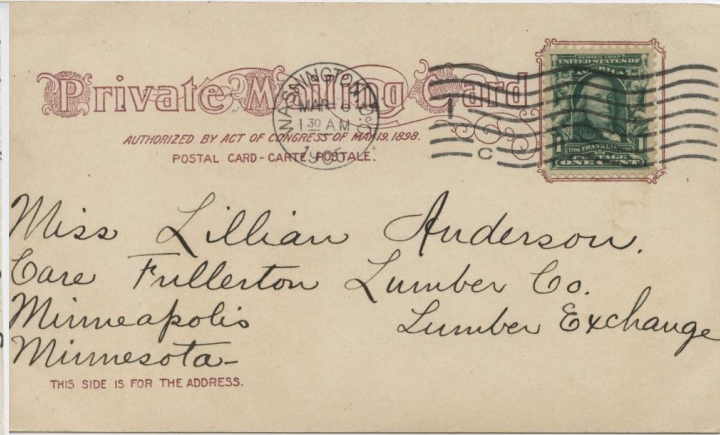 Private Mailing Card
AUTHORIZED BY ACT OF CONGRESS OF MAY 19, 1898.
POSTAL CARD - CARTE POSTALE.
WASHINGTON, D.C.
MAR
1 30 AM
1905
UNITED STATES OF
AMERICA
FRANKLIN
POSTAGE
1 ONE CENT 1
Miss Lillian Anderson.
Care Fullerton Lumber Co.
Minneapolis Lumber Exchange
Minnesota
THIS SIDE IS FOR THE ADDRESS.